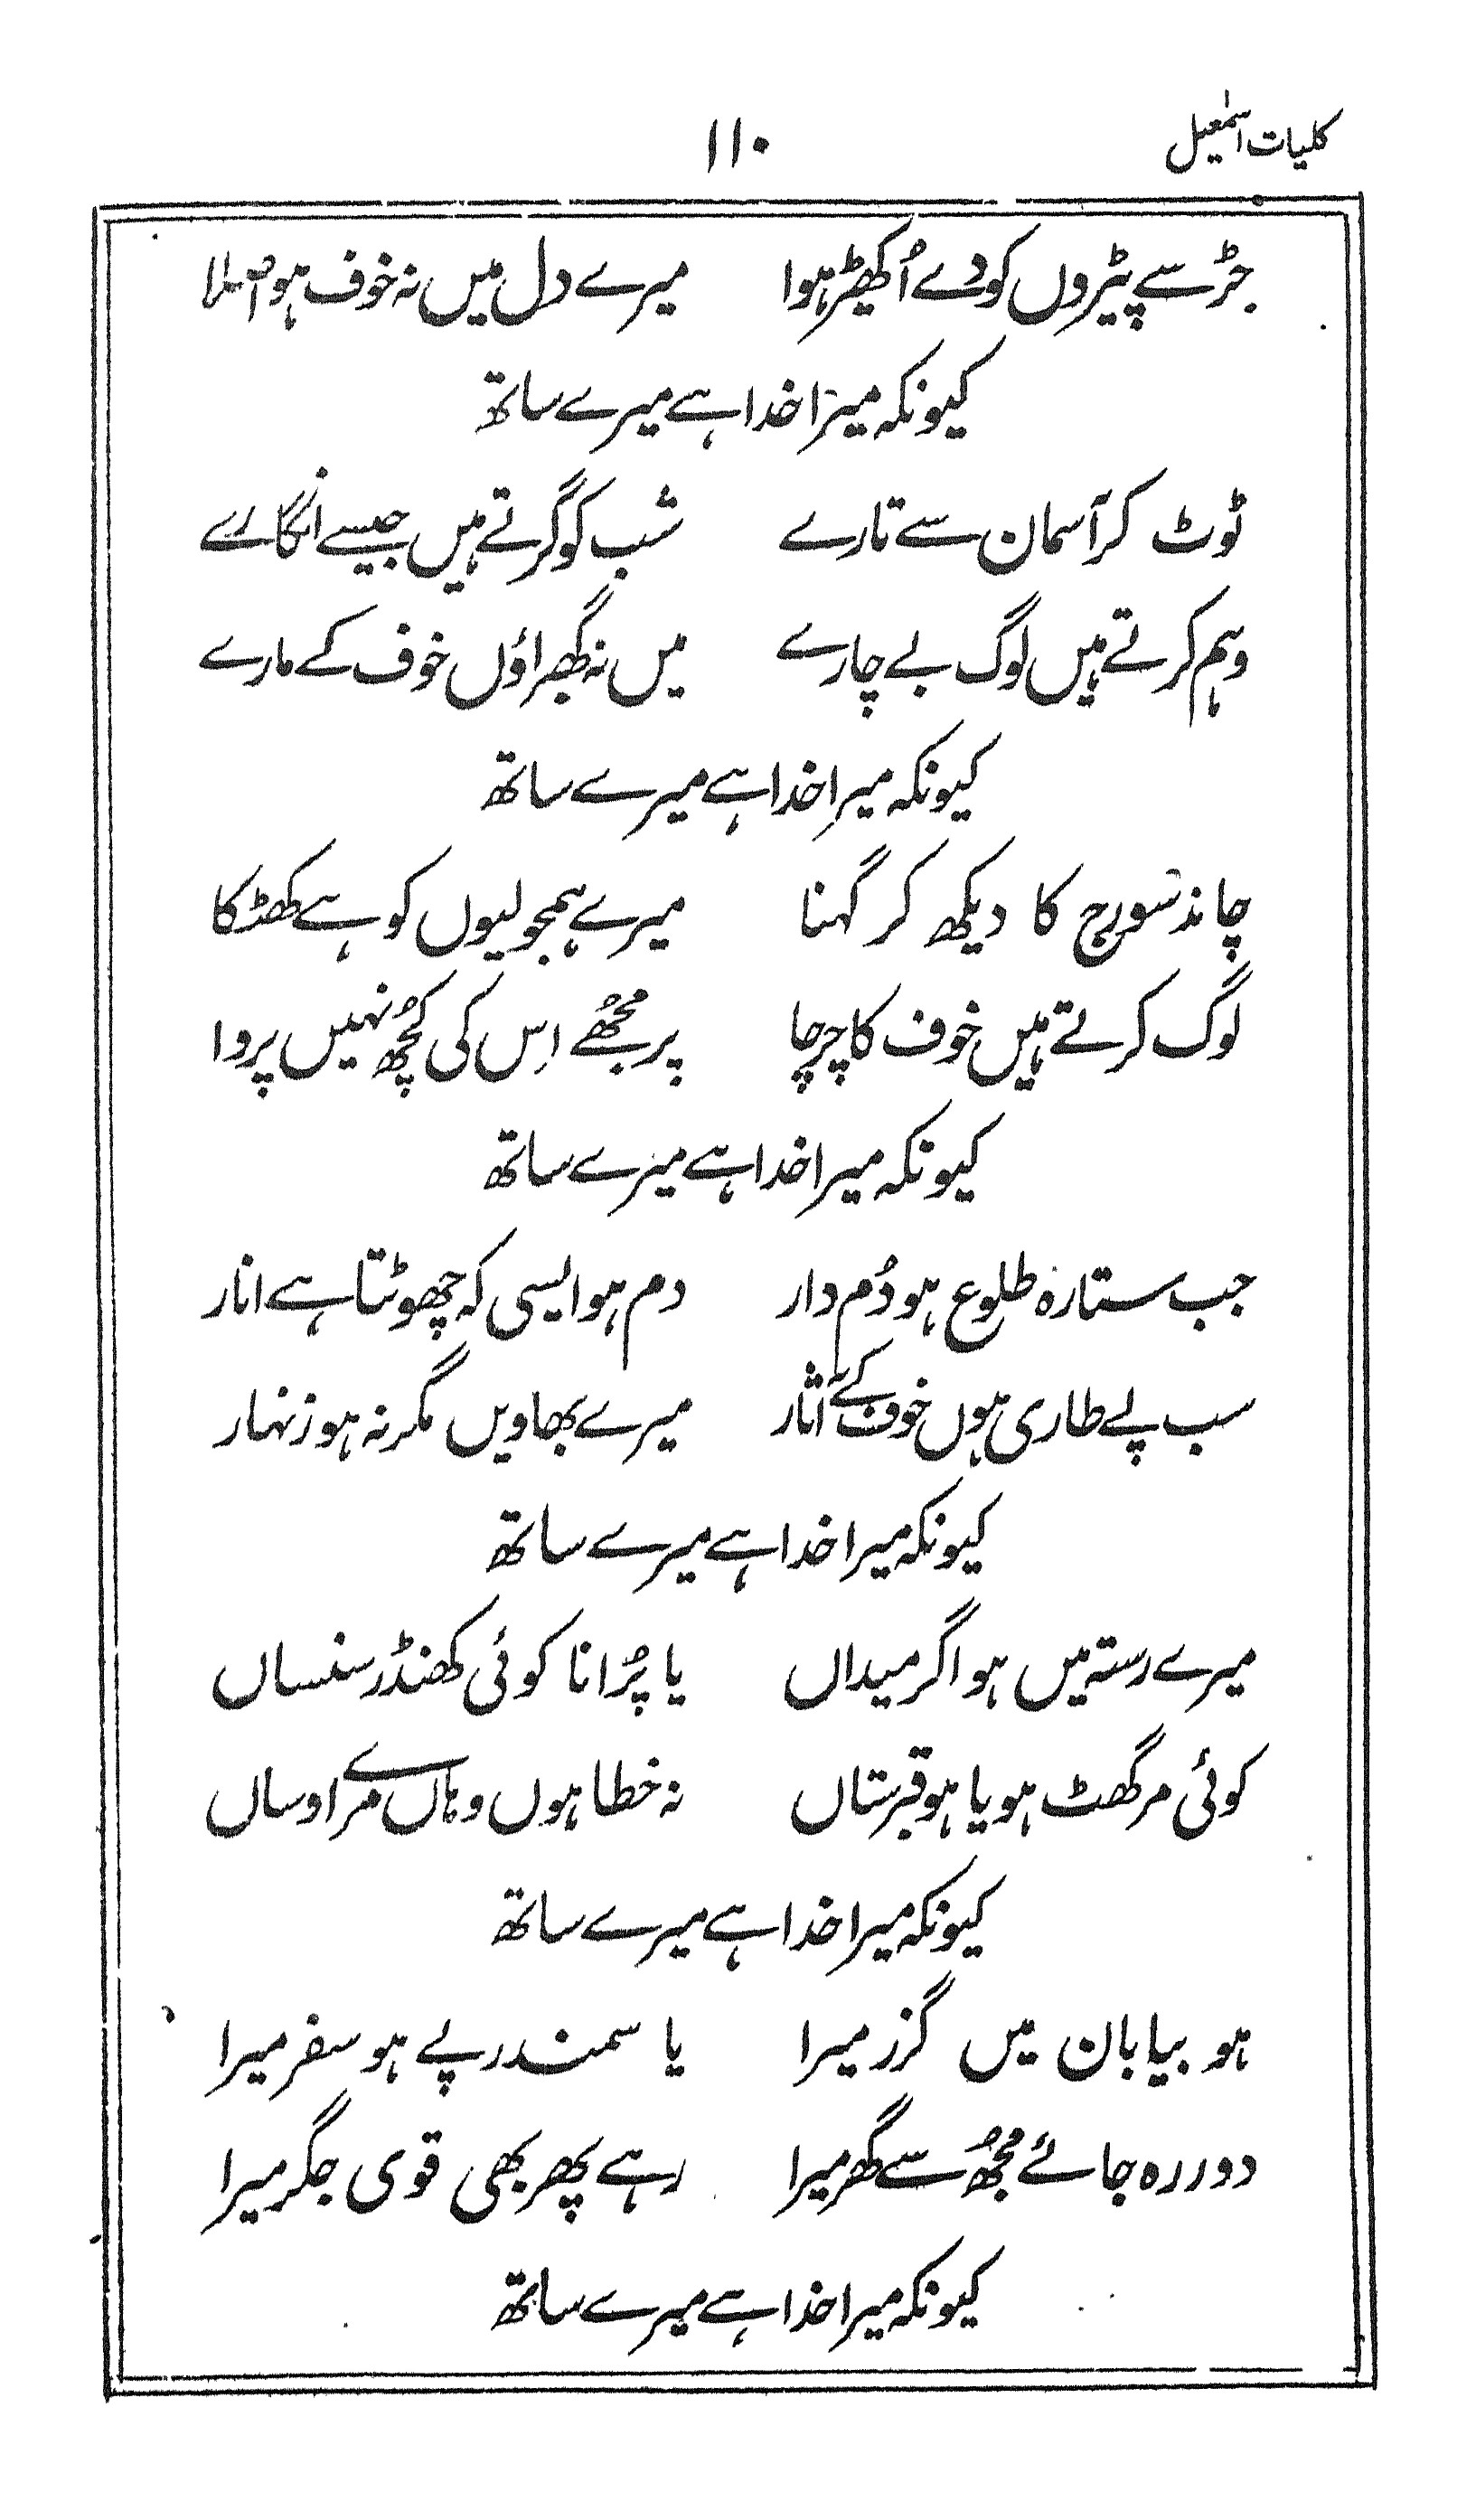 کلیات اسمٰعیل ۱۱۰
جڑ سے پیڑوں کو دے اُکھیڑ ہوا میرے دل میں نہ خوف ہو اصلا
کیونکہ میرا خدا ہے میرے ساتھ
ٹوٹ کر آسمان سے تارے شب کو گرتے ہیں جیسے انگارے
وہم کرتے ہیں لوگ بے چارے میں نہ گھبراؤں خوف کے مارے
کیونکہ میرا خدا ہے میرے ساتھ
چاند سورج کا دیکھ کر گہنا میرے ہمجولیوں کو ہے کھٹکا
لوگ کرتے ہیں خوف کا چرچا پر مجھُے اِس کی کچُھ نہیں پروا
کیونکہ میرا خدا ہے میرے ساتھ
جب ستارہ طلوع ہو دُم دار دم ہو ایسی کہ چھوٹتا ہے انار
سب پے طاری ہوں خوف کے آثار میرے بھاویں مگر نہ ہو زنہار
کیونکہ میرا خدا ہے میرے ساتھ
میرے رستہ میں ہو اگر میداں یا پُرانا کوئی کھنڈر سنساں
کوئی مرگھٹ ہو یا ہو قبرستاں نہ خطا ہوں وہاں مرے اوساں
کیونکہ میرا خدا ہے میرے ساتھ
ہو بیابان میں گزر میرا یا سمندر پے ہو سفر میرا
دور رہ جائے مجھُ سے گھر میرا رہے پھر بھی قوی جگر میرا
کیونکہ میرا خدا ہے میرے ساتھ